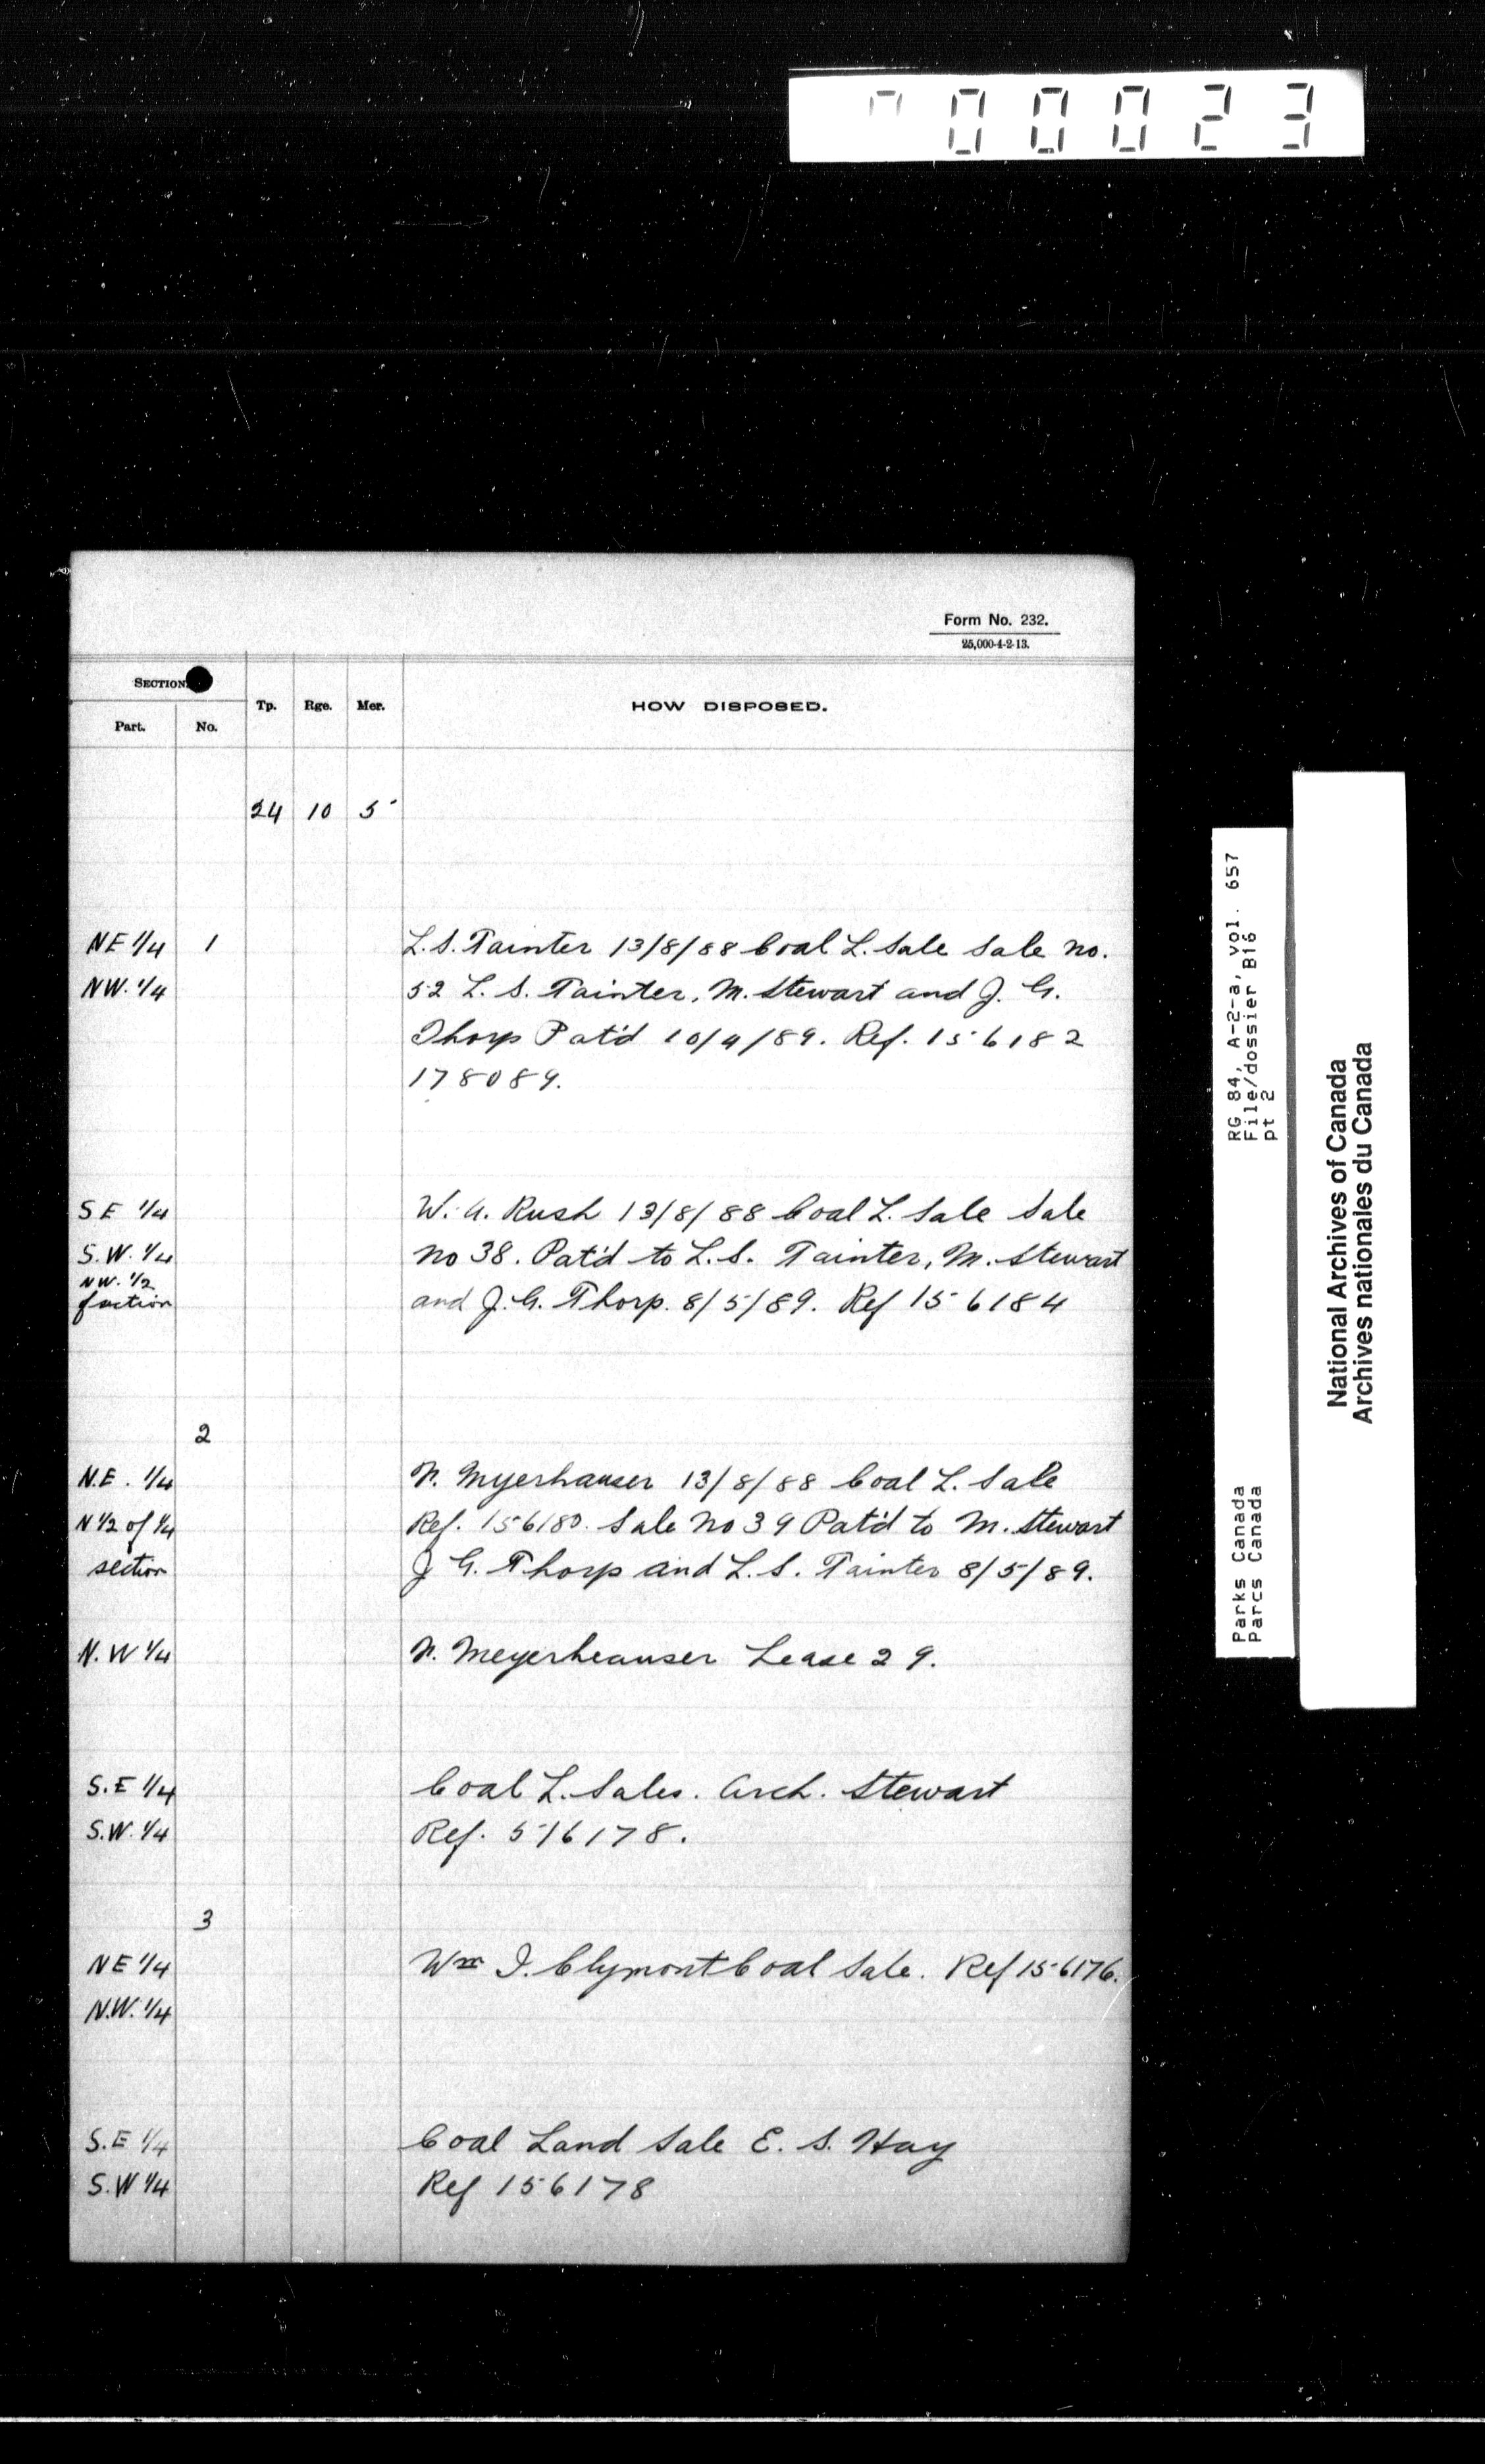 00023
Form No. 232.
25,000-4-2-13.
SECTION
Part. No. Tp. Rge. Mer. HOW DISPOSED.
24 10 5
NE 1/4 1 L. S. Tainter 13/8/88 Coal L. Sale Sale no.
NW. 1/4 52 L. S. Tainter, M. Stewart and J. G.
Thorp Pat'd 10/4/89. Ref. 156182
178089.
SE 1/4 W. A. Rush 13/8/88 Coal L. Sale Sale
S.W. 1/4 no 38. Pat'd to L.S. Tainter, M. Stewart
NW. 1/2
faction and J. G. Thorp. 8/5/89. Ref 156184
2
N.E. 1/4 N. Myerhauser 13/8/88 Coal L. Sale
N 1/2 of 1/4 Ref. 156180. Sale No 39 Pat'd to M. Stewart
section J G. Thorp and L. S. Tainter 8/5/89.
N. W 1/4 N. Meyerheauser Lease 29.
S.E 1/4 Coal L. Sales. Arch. Stewart
S.W. 1/4 Ref. 516178.
3
NE 1/4 Wm I. Clymont Coal Sale. Ref 156176.
N.W. 1/4
S.E 1/4 Coal Land Sale E. S. Hay
S.W 1/4 Ref 156178
RG 84, A-2-a, vol. 657
File/dossier B16
pt 2
Parks Canada
Parcs Canada
National Archives of Canada
Archives nationales du Canada